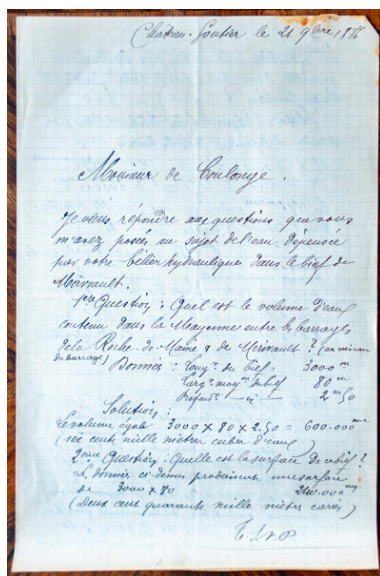 Château-Gontier le 21 9bre 1886
Monsieur de Coulonge.
Je viens répondre aux questions que vous
m'avez posées au sujet de l'eau dépensée
par votre bélier hydraulique dans le bief de
Mirvault.
1ère Question : Quel est le volume d'eau
contenu dans la Mayenne entre les barrages
de la Roche-de-Maine & de Mirvault ? (au niveau
du barrage)
Données : Longr du bief : 3000 m
Largr moyne du bief 80 m
Profondr — id — 2 m 50
Solution :
Le volume égale 3000 x 80 x 2.50 = 600.000 m
(six cents mille mètres cubes d'eau)
2ème Question : Quelle est la surface de ce bief ?
Les données ci-dessus produisent une surface
de 3000 x 80 240.000 m
(Deux cent quarante mille mètres carrés)
T S V P